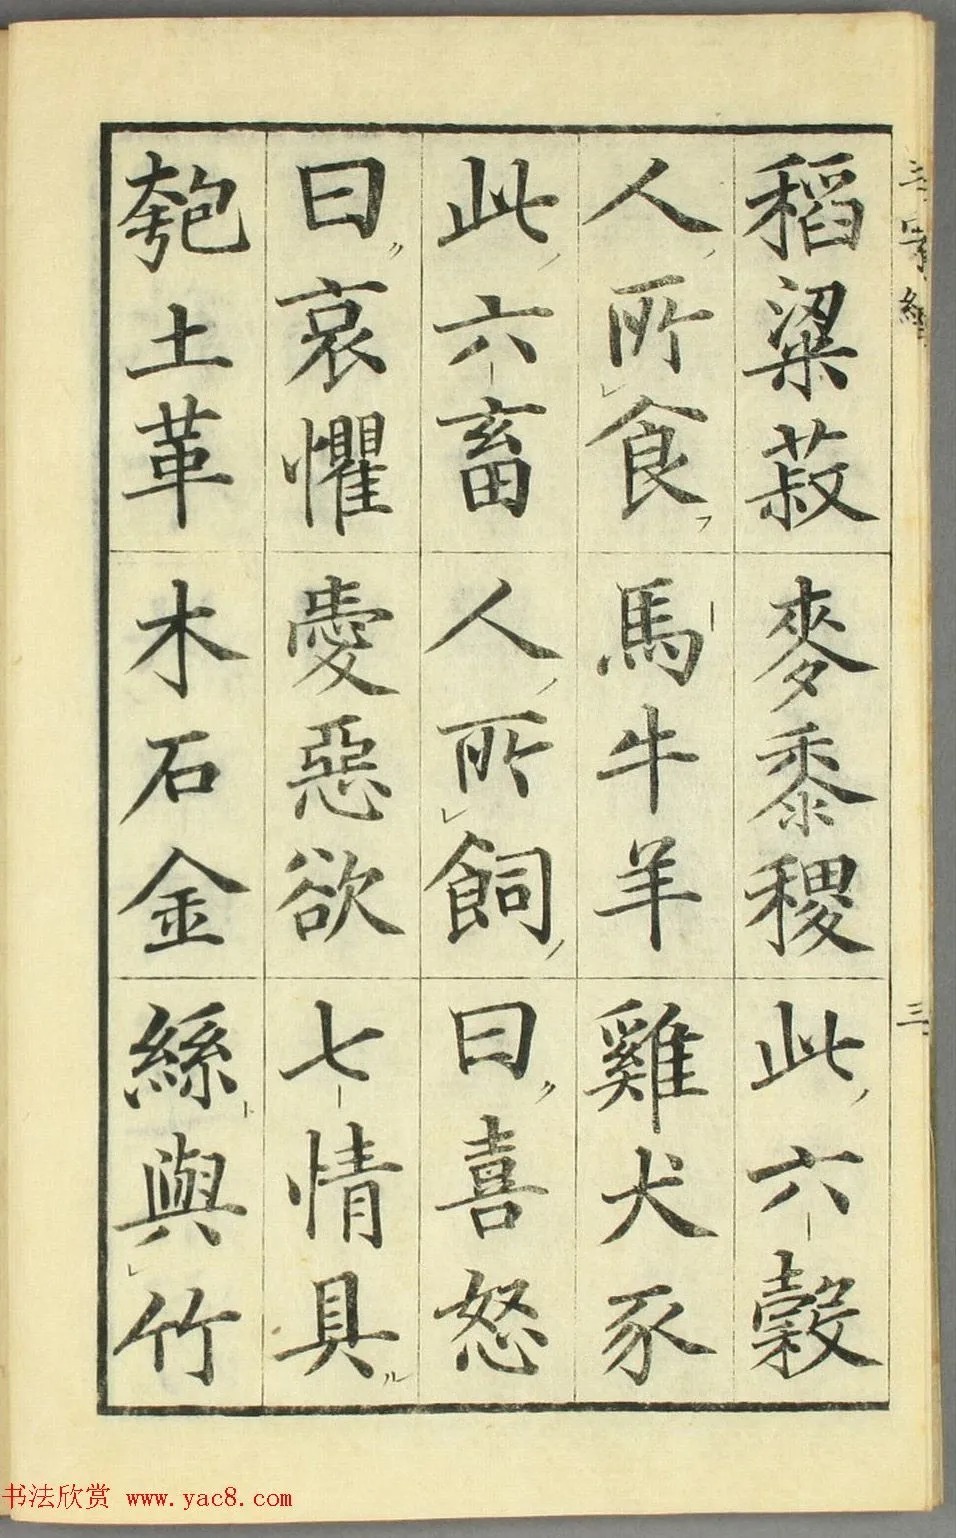 稻粱菽麥黍稷此六穀
人所食馬牛羊雞犬豕
此六畜人所飼曰喜怒
曰哀懼愛惡欲七情具
匏土革木石金絲與竹
三字經
三
书法欣赏 www.yac8.com